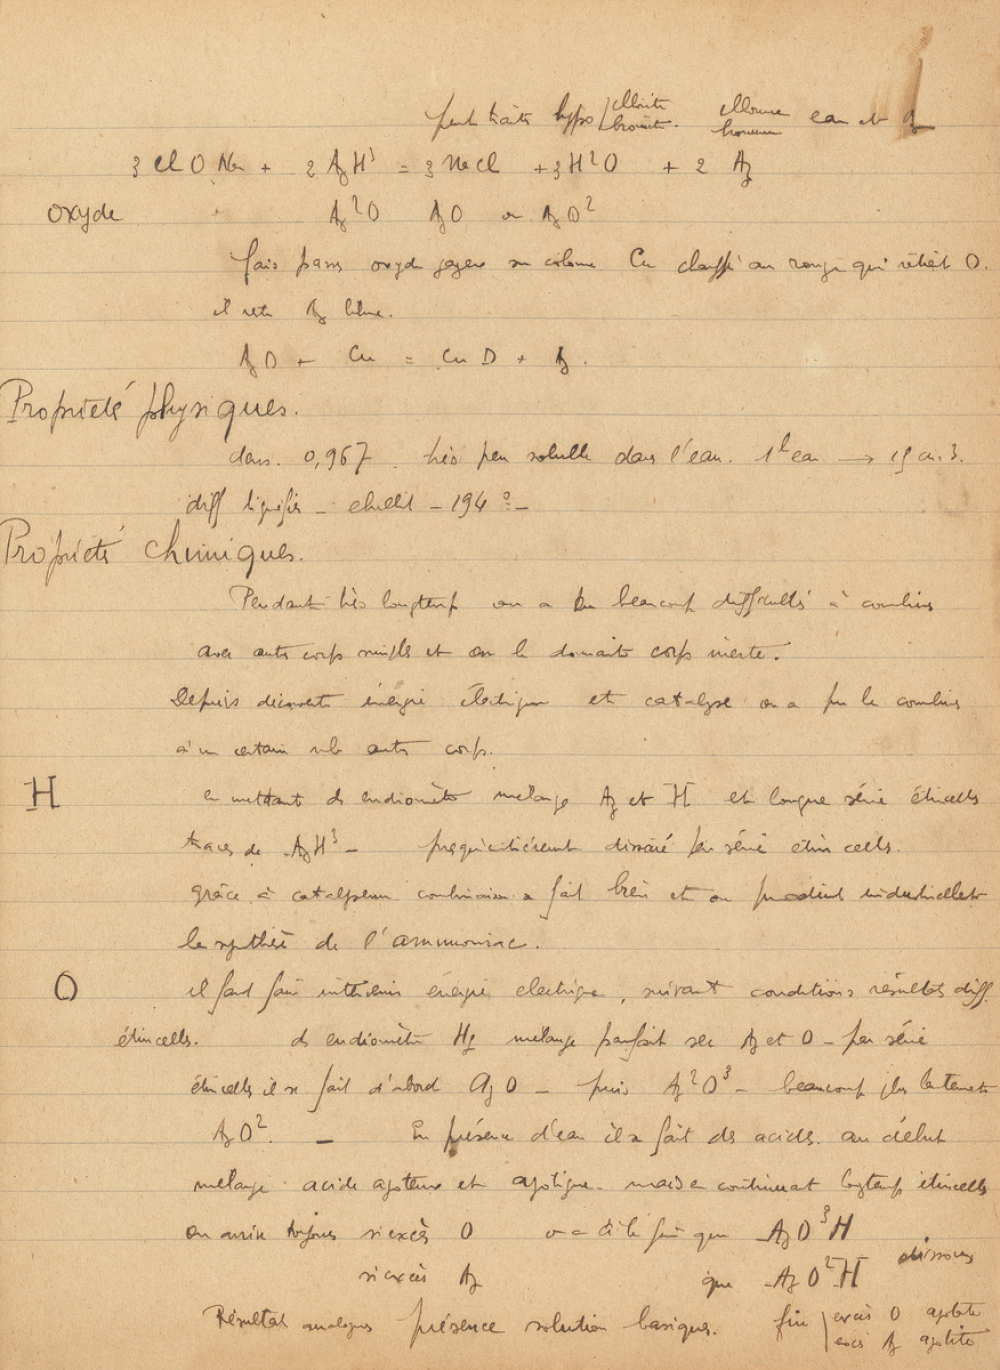 peut traiter hypo chlorite bromite. chlorure bromure eau et Az
3 Cl O Na + 2 AzH³ = 3 NaCl + 3 H²O + 2 Az
oxyde Az²O AzO ou AzO²
fais passer oxyde gazeux sur colonne Cu chauffé au rouge qui retient O.
il reste Az libre.
AzO + Cu = CuO + Az.
Propriété physiques.
dens. 0,967. très peu soluble dans l'eau. 1ˡ eau → 15 cm3.
diff liquéfier – ébullit – 194° –
Propriété chimiques.
Pendant très longtemps on a eu beaucoup difficultés à combiner
avec autres corps simples et on le donnait corps inerte.
Depuis découverte énergie électrique et catalyse on a pu le combiner
à un certain nb autres corps.
H en mettant ds eudiomètre mélange Az et H et longue série étincelles
traces de AzH³ – dissocié par série étincelles.
grâce à catalyseur combinaison se fait bien et on produit industriellet
la synthèse de l'ammoniac.
O il faut faire intervenir énergie électrique, suivant conditions résultats diff.
étincelles. ds eudiomètre Hg mélange parfait sec Az et O – par série
étincelles il se fait d'abord AzO – puis Az²O³ – beaucoup plus lentement
AzO². – En présence d'eau il se fait des acides. au début
mélange acide azoteux et azotique. mais en continuant lgtemps étincelles
on arrive toujours si excès O à ce fait que AzO³H
si excès Az que AzO²H dissous
Résultat analogues présence solution basiques. fin excès O azotate
excès Az azotite